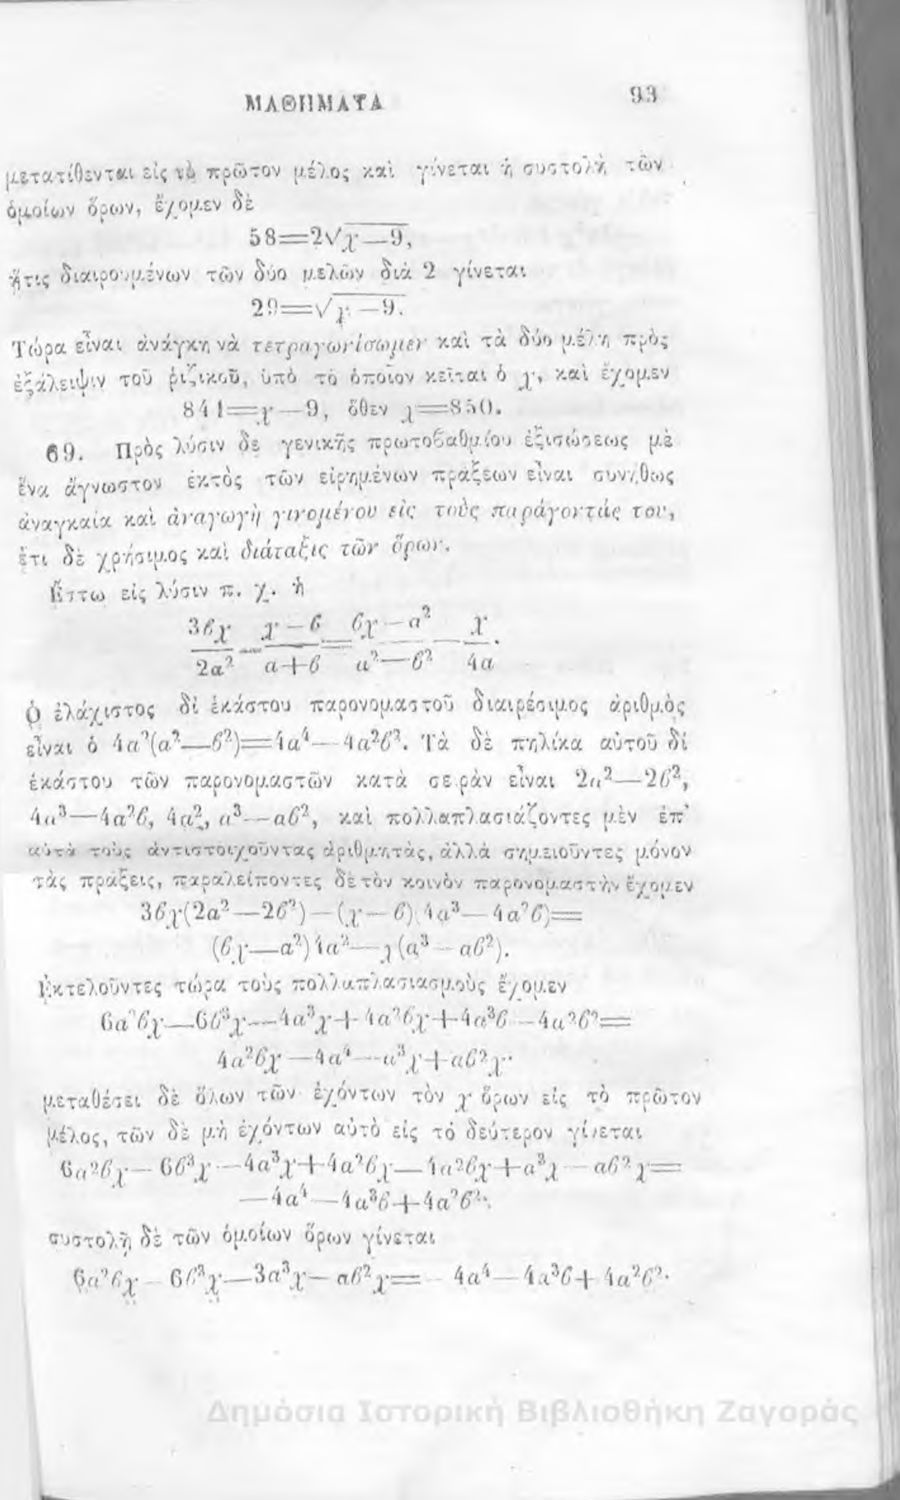 ΜΑΘΗΜΑΤΑ 93
μετατίθενται εἰς τὸ πρῶτον μέλος καὶ γίνεται ἡ συστολὴ τῶν
ὁμοίων ὅρων, ἔχομεν δὲ
58=2√χ—9,
ἥτις διαιρουμένων τῶν δύο μελῶν διὰ 2 γίνεται
29=√χ—9.
Τώρα εἶναι ἀνάγκη νὰ τετραγωνίσωμεν καὶ τὰ δύο μέλη πρὸς
ἐξάλειψιν τοῦ ῥιζικοῦ, ὑπὸ τὸ ὁποῖον κεῖται ὁ χ, καὶ ἔχομεν
841=χ—9, ὅθεν χ=850.
69. Πρὸς λύσιν δὲ γενικῆς πρωτοβαθμίου ἐξισώσεως μὲ
ἕνα ἄγνωστον ἐκτὸς τῶν εἰρημένων πράξεων εἶναι συνήθως
ἀναγκαία καὶ ἀναγωγὴ γινομένου εἰς τοὺς παράγοντάς του,
ἔτι δὲ χρήσιμος καὶ διάταξις τῶν ὅρων.
Ἔστω εἰς λύσιν π. χ. ἡ
3βχ/2α² — χ—β/α+β = βχ—α²/α²—β² — χ/4α.
Ὁ ἐλάχιστος δι ἑκάστου παρονομαστοῦ διαιρέσιμος ἀριθμὸς
εἶναι ὁ 4α²(α²—β²)=4α⁴—4α²β². Τὰ δὲ πηλίκα αὐτοῦ δι
ἑκάστου τῶν παρονομαστῶν κατὰ σειρὰν εἶναι 2α²—2β²,
4α³—4α²β, 4α², α³—αβ², καὶ πολλαπλασιάζοντες μὲν ἐπ'
αὐτὰ τοὺς ἀντιστοιχοῦντας ἀριθμητὰς, ἀλλὰ σημειοῦντες μόνον
τὰς πράξεις, παραλείποντες δὲ τὸν κοινὸν παρονομαστὴν ἔχομεν
3βχ(2α²—2β²)—(χ—β)(4α³—4α²β)=
(βχ—α²)4α²—χ(α³—αβ²).
Ἐκτελοῦντες τώρα τοὺς πολλαπλασιασμοὺς ἔχομεν
6α²βχ—6β³χ—4α³χ+4α²βχ+4α³β—4α²β²=
4α²βχ—4α⁴—α³χ+αβ²χ·
μεταθέσει δὲ ὅλων τῶν ἐχόντων τὸν χ ὅρων εἰς τὸ πρῶτον
μέλος, τῶν δὲ μὴ ἐχόντων αὐτὸ εἰς τό δεύτερον γίνεται
6α²βχ—6β³χ—4α³χ+4α²βχ—4α²βχ+α³χ—αβ²χ=
—4α⁴—4α³β+4α²β²·
συστολῇ δὲ τῶν ὁμοίων ὅρων γίνεται
6α²βχ—6β³χ—3α³χ—αβ²χ=—4α⁴—4α³β+4α²β²·
Δημόσια Ιστορική Βιβλιοθήκη Ζαγοράς